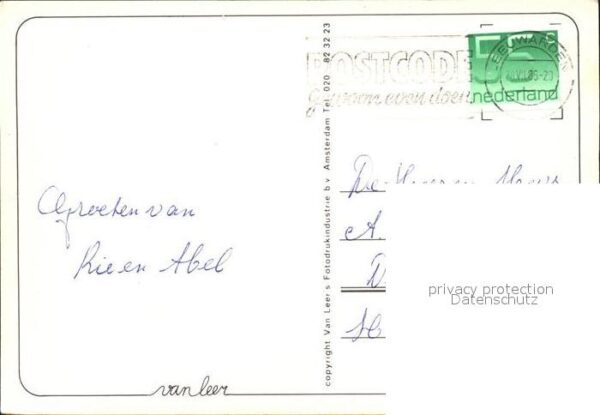 POSTCODE
gewoon even doen
55c
nederland
LEEUWARDEN
Groeten van
Rie en Abel
De Heer en Mevr
A.
D
H
privacy protection
Datenschutz
copyright Van Leer's Fotodrukindustrie b.v. Amsterdam Tel. 020 - 82 32 23
van leer